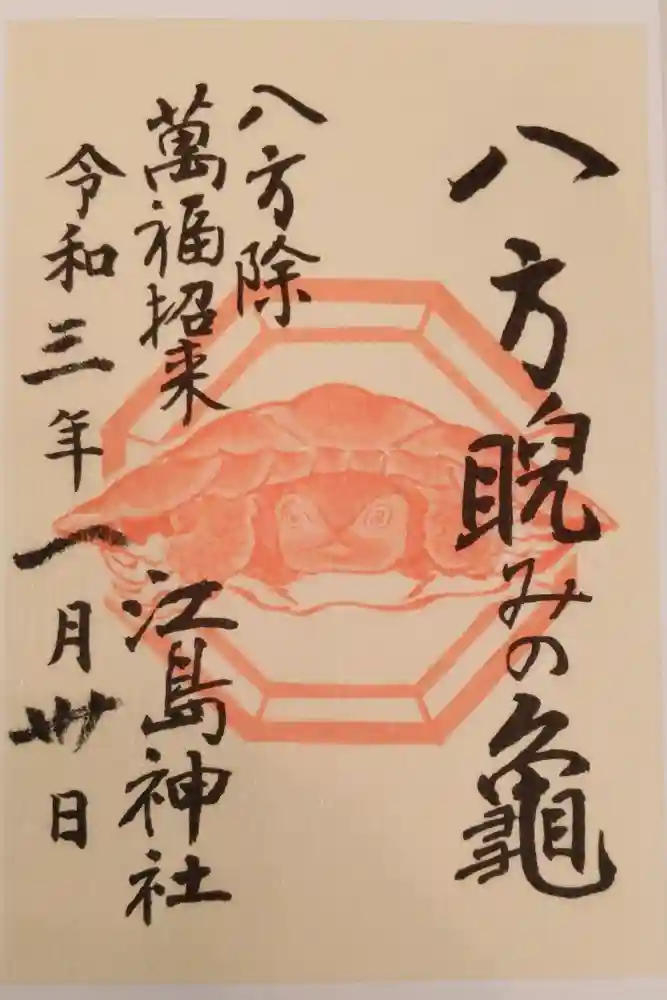 八方睨みの龜
八方除
萬福招来
江島神社
令和三年一月卅日